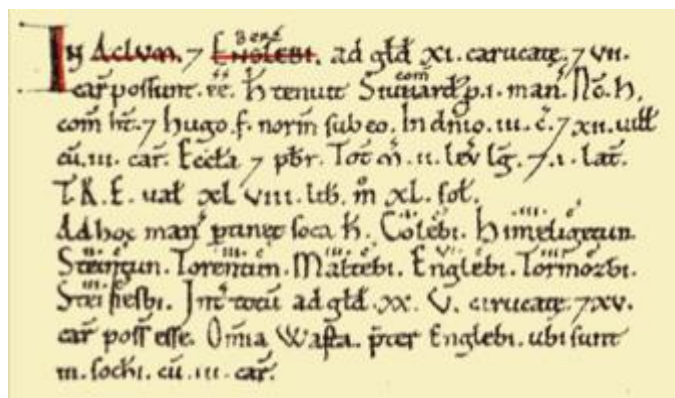 IN Aclum. ⁊ Englebi. ad gld̄ xi. carucatę. ⁊ vii.
car̄ possunt. ēē. H̄ tenuit Siuuard p. i. man̄. N̄c. h.
com̄ ht̄. ⁊ hugo. f. norm̄ sub eo. In dn̄io. iii. c̄. ⁊ xii. uiłł
cū. iii. car̄. Eccła ⁊ pb̄r. Tot̄ m̄. ii. lev̄ lḡ. ⁊. i. lat̄.
T.R.E. uał xl viii. lib. m̊ xl. soł.
Ad hoc man̄ ptinet soca h̄. Himeligetun.
Steintun. Torentun. Maltebi. Englebi. Tormozbi.
Steinesbi. Int̄ totū ad gld̄. xx. v. carucatę. ⁊ xv.
car̄ poss̄ esse. Om̄ia Wasta. p̄ter Englebi. ubi sunt
iii. socħi. cū. iii. car̄.